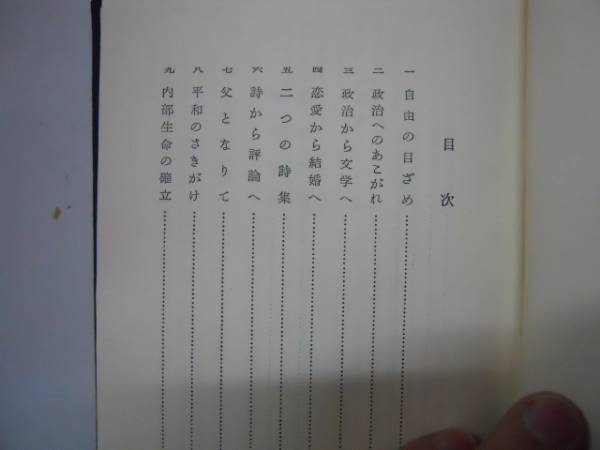 目次
一 自由の目ざめ
二 政治へのあこがれ
三 政治から文学へ
四 恋愛から結婚へ
五 二つの詩集
六 詩から評論へ
七 父となりて
八 平和のさきがけ
九 内部生命の確立